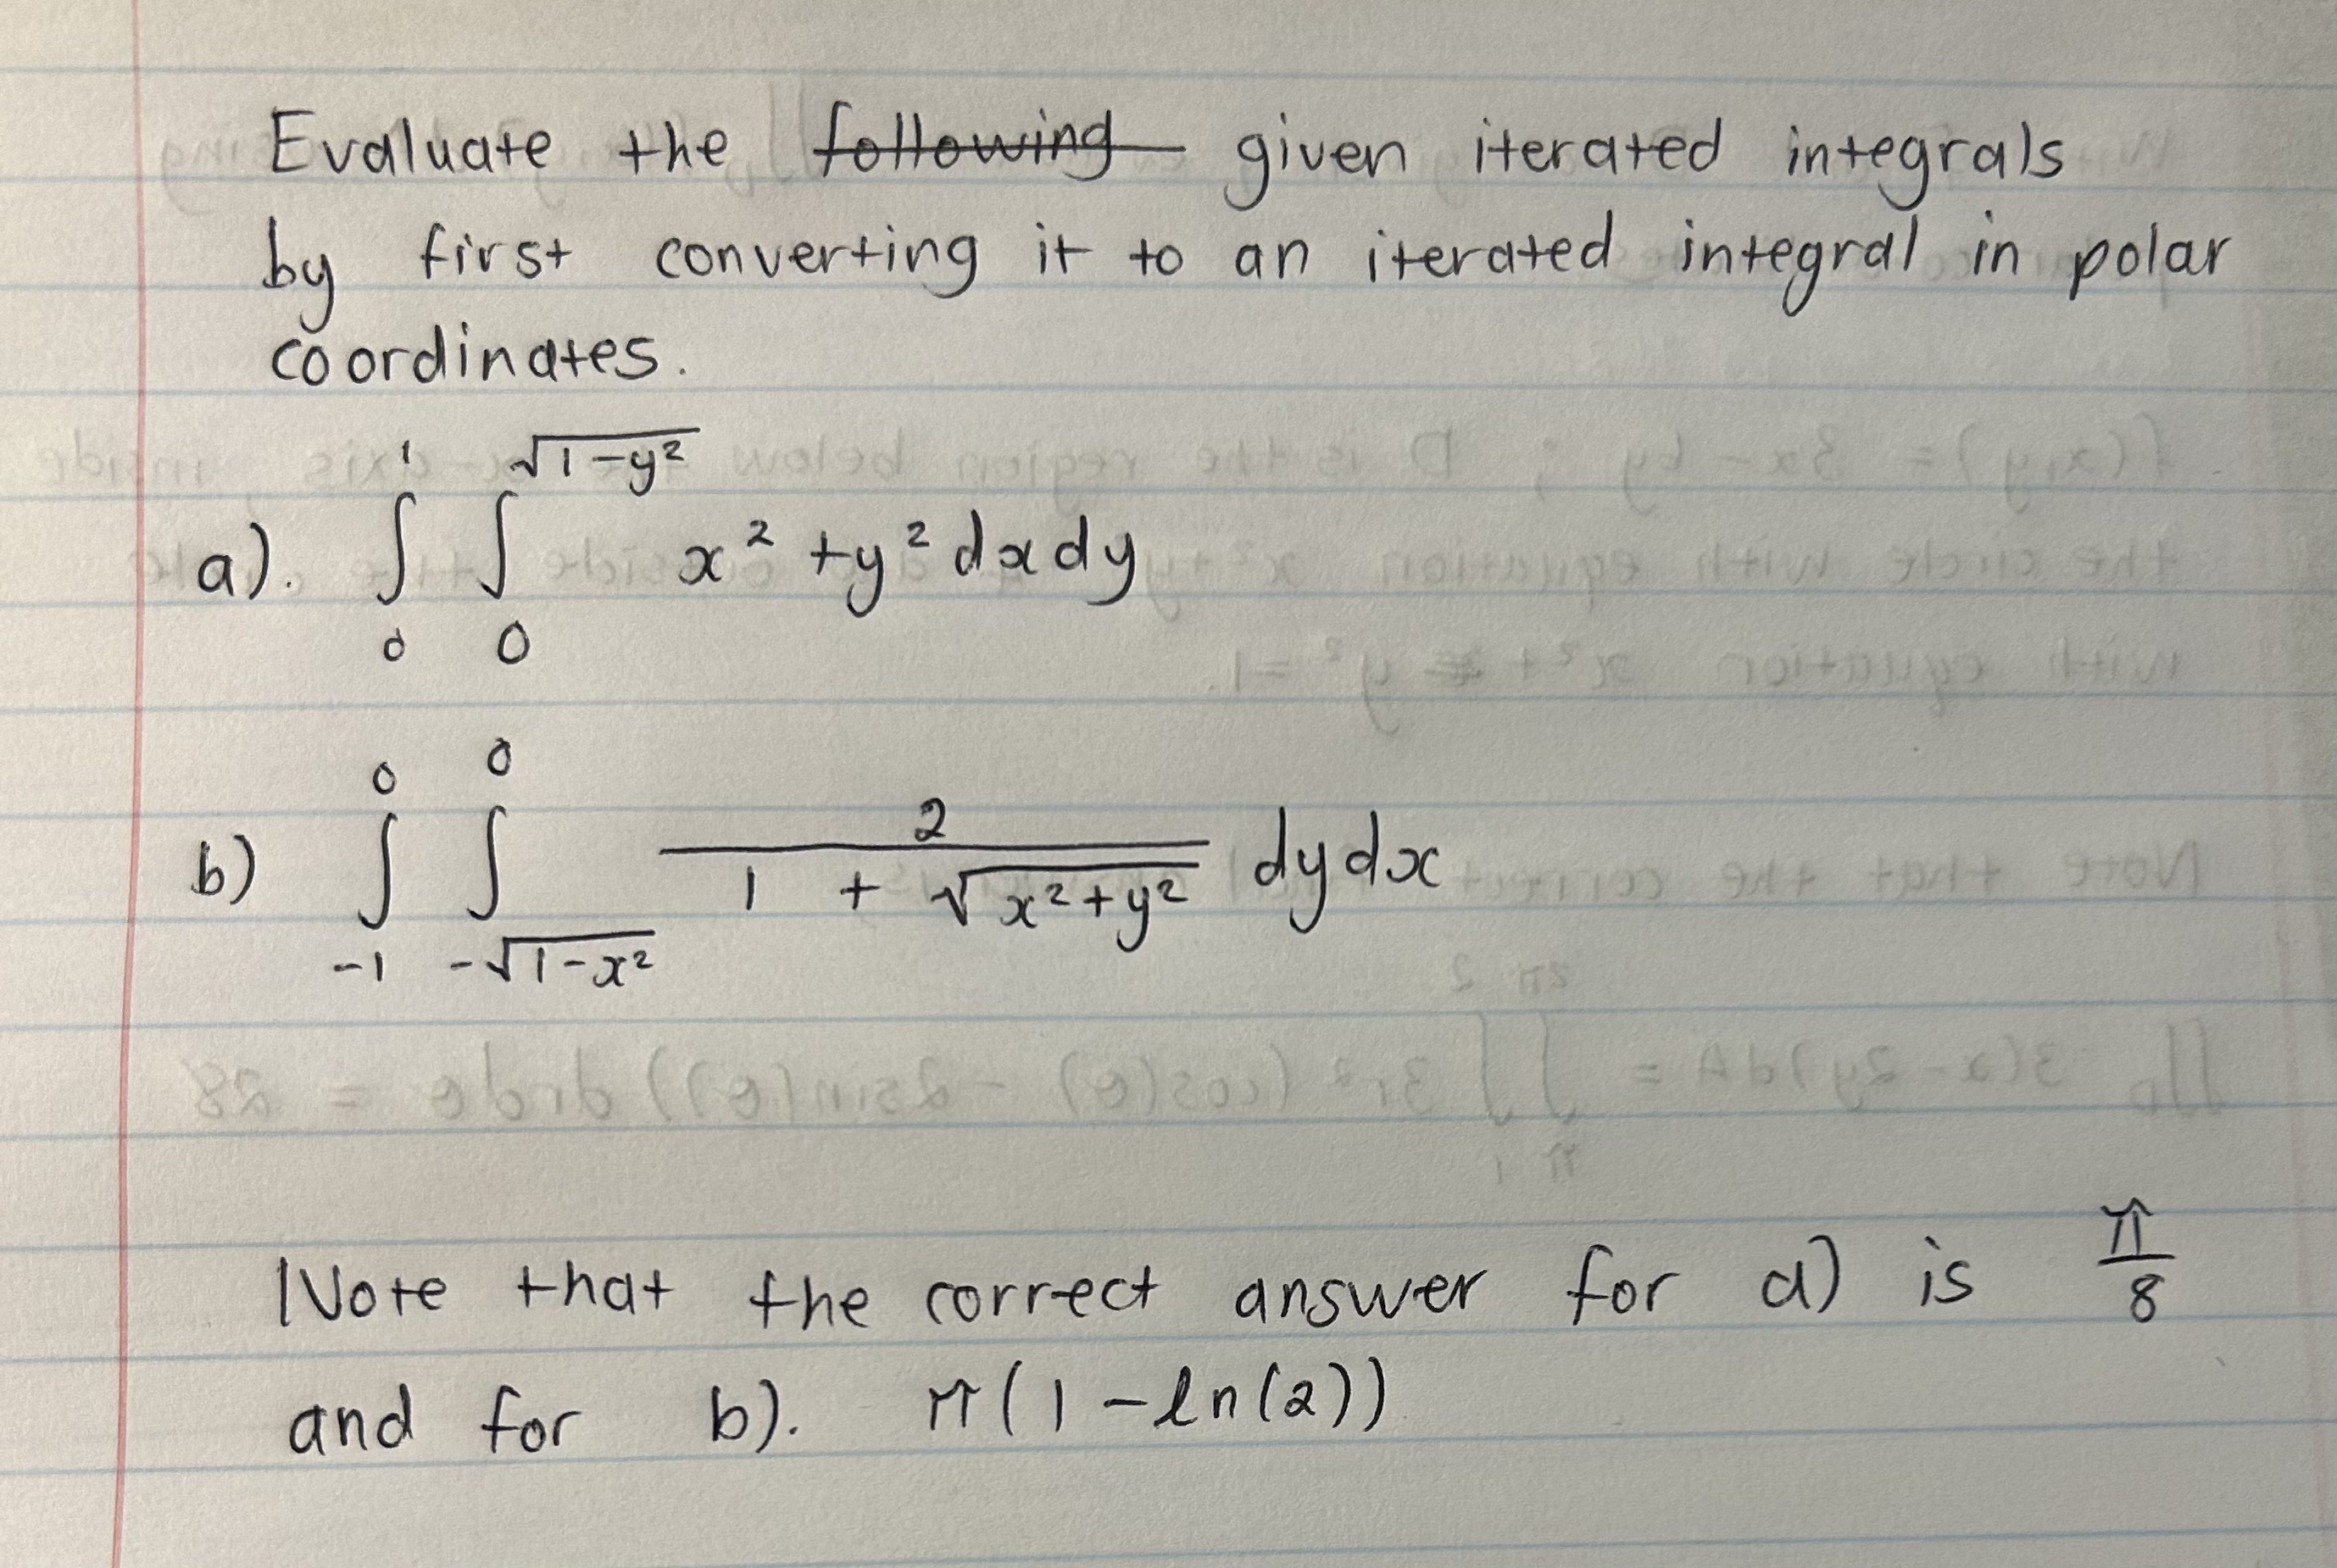 Evaluate the following given iterated integrals
by first converting it to an iterated integral in polar
coordinates.
a). ∫₀¹ ∫₀^√(1-y²) x² + y² dx dy
b) ∫₋₁⁰ ∫_{-√(1-x²)}^0 2 / (1 + √(x²+y²)) dy dx
Note that the correct answer for a) is π/8
and for b). π(1 - ln(2))